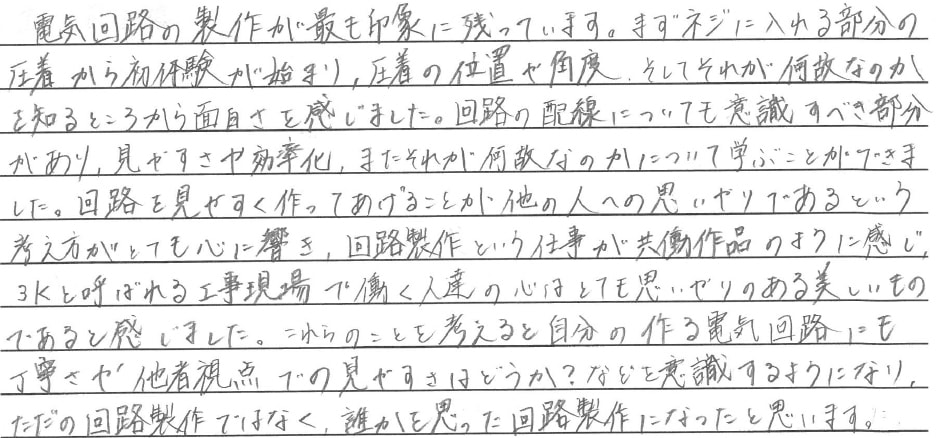 電気回路の製作が最も印象に残っています。まずネジに入れる部分の
圧着から初体験が始まり,圧着の位置や角度,そしてそれが何故なのか
を知るところから面白さを感じました。回路の配線についても意識すべき部分
があり,見やすさや効率化,またそれが何故なのかについて学ぶことができま
した。回路を見やすく作ってあげることが他の人への思いやりであるという
考え方がとても心に響き,回路製作という仕事が共働作品のように感じ,
3Kと呼ばれる工事現場で働く人達の心はとても思いやりのある美しいもの
であると感じました。これらのことを考えると自分の作る電気回路にも
丁寧さや他者視点での見やすさはどうか?などを意識するようになり,
ただの回路製作ではなく,誰かを思った回路製作になったと思います。